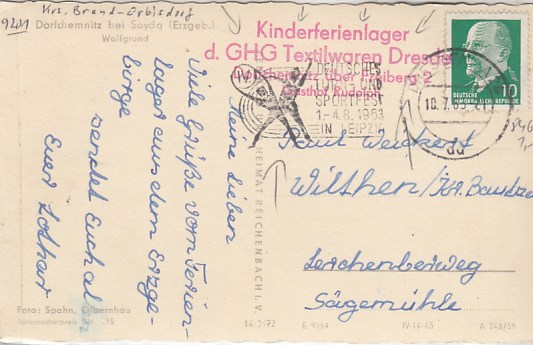 Krs. Brand-Erbisdorf
9201
Dorfchemnitz bei Sayda (Erzgeb.)
Wolfgrund
Kinderferienlager
d. GHG Textilwaren Dresden
Dorfchemnitz über Freiberg 2
Gasthof Rudolph
DEUTSCHES
TURN- UND
SPORTFEST
1.-4.8.1963
IN LEIPZIG
10
DEUTSCHE
DEMOKRATISCHE REPUBLIK
10.7.63
Meine Lieben
Viele Grüße vom Ferien-
lager aus dem Erzge-
birge
sendet Euch al
Euer Lothar
Wilthen/Kr. Bautzen
Lerchenbergweg
Sägemühle
HEIMAT REICHENBACH I. V.
Foto: Spahn, Olbernhau
Verbraucherpreis DM -,15
14/3972
E 9084
IV-14-45
A 248/59